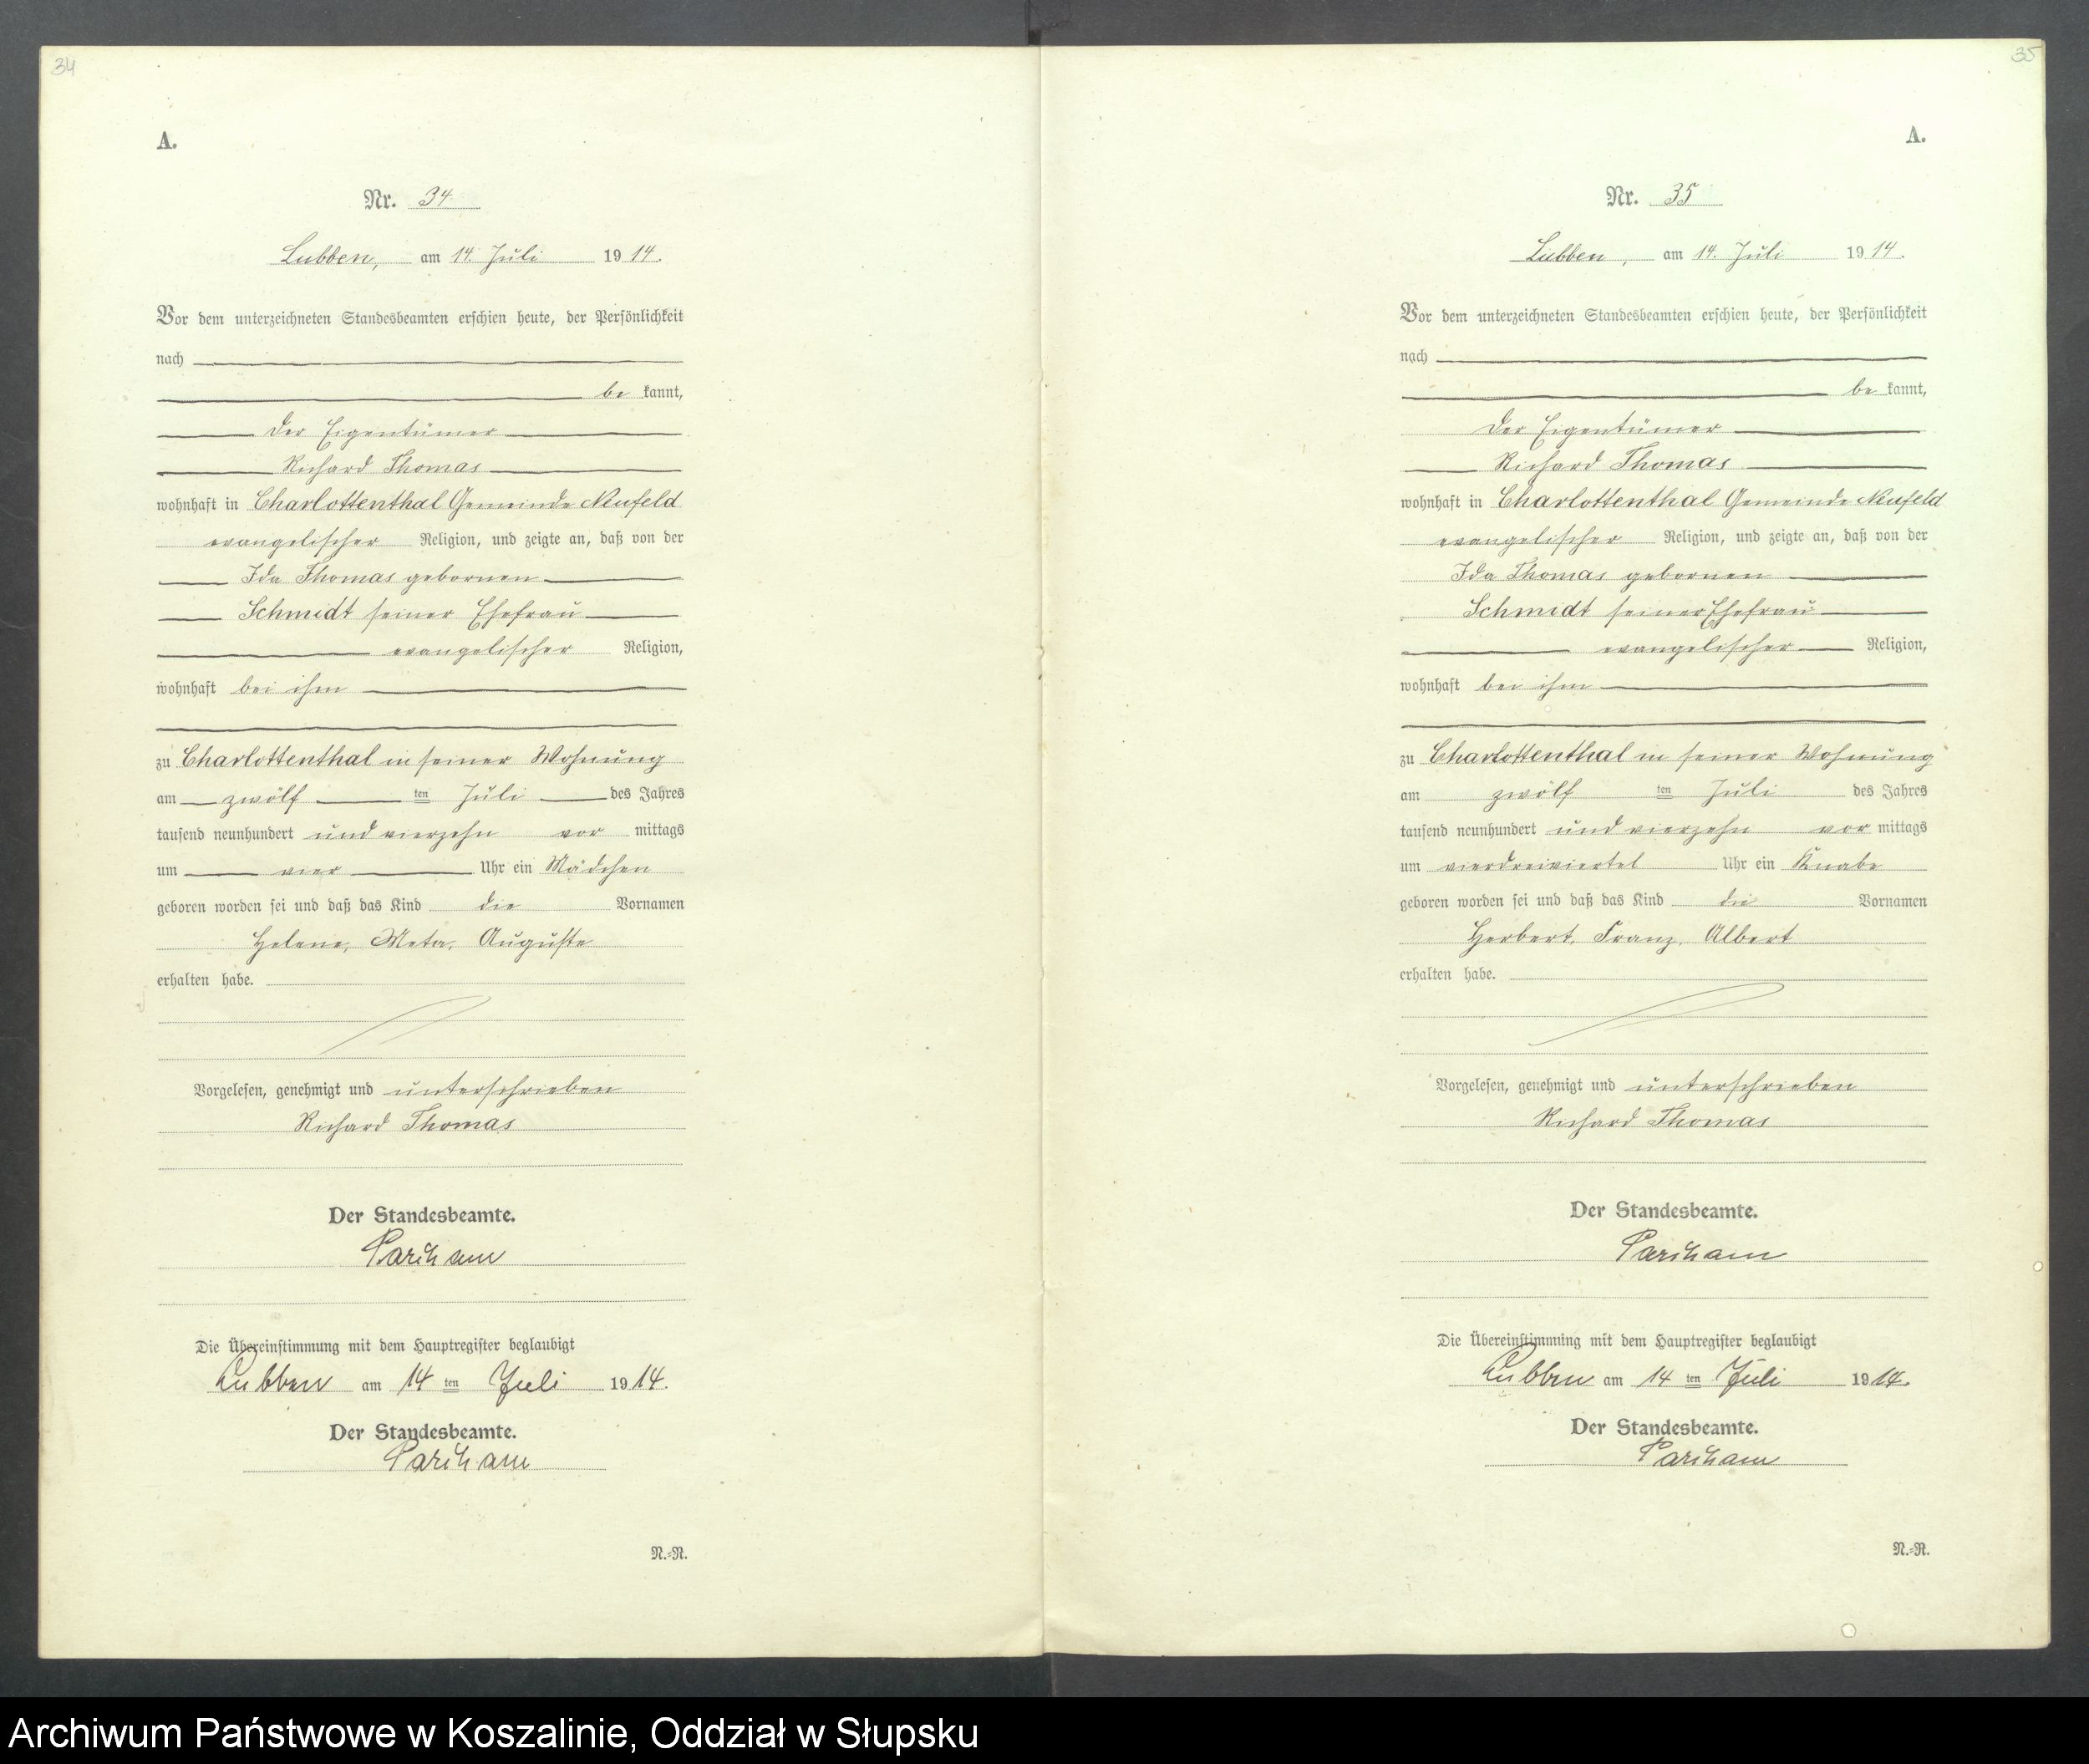 34
A.
Nr. 34
Lubben, am 14. Juli 1914.
Vor dem unterzeichneten Standesbeamten erschien heute, der Persönlichkeit
nach
be kannt,
der Eigentümer
Richard Thomas
wohnhaft in Charlottenthal Gemeinde Neufeld
evangelischer Religion, und zeigte an, daß von der
Ida Thomas gebornen
Schmidt seiner Ehefrau
evangelischer Religion,
wohnhaft bei ihm
zu Charlottenthal in seiner Wohnung
am zwölf ten Juli des Jahres
tausend neunhundert und vierzehn vor mittags
um vier Uhr ein Mädchen
geboren worden sei und daß das Kind die Vornamen
Helene, Meta, Auguste
erhalten habe.
Vorgelesen, genehmigt und unterschrieben
Richard Thomas
Der Standesbeamte.
Die Übereinstimmung mit dem Hauptregister beglaubigt
Lubben am 14 ten Juli 1914.
Der Standesbeamte.
N.=R.
35
A.
Nr. 35
Lubben, am 14. Juli 1914.
Vor dem unterzeichneten Standesbeamten erschien heute, der Persönlichkeit
nach
be kannt,
der Eigentümer
Richard Thomas
wohnhaft in Charlottenthal Gemeinde Neufeld
evangelischer Religion, und zeigte an, daß von der
Ida Thomas gebornen
Schmidt seiner Ehefrau
evangelischer Religion,
wohnhaft bei ihm
zu Charlottenthal in seiner Wohnung
am zwölf ten Juli des Jahres
tausend neunhundert und vierzehn vor mittags
um vierdreiviertel Uhr ein Knabe
geboren worden sei und daß das Kind die Vornamen
Herbert, Franz, Albert
erhalten habe.
Vorgelesen, genehmigt und unterschrieben
Richard Thomas
Der Standesbeamte.
Die Übereinstimmung mit dem Hauptregister beglaubigt
Lubben am 14 ten Juli 1914.
Der Standesbeamte.
N.=R.
Archiwum Państwowe w Koszalinie, Oddział w Słupsku